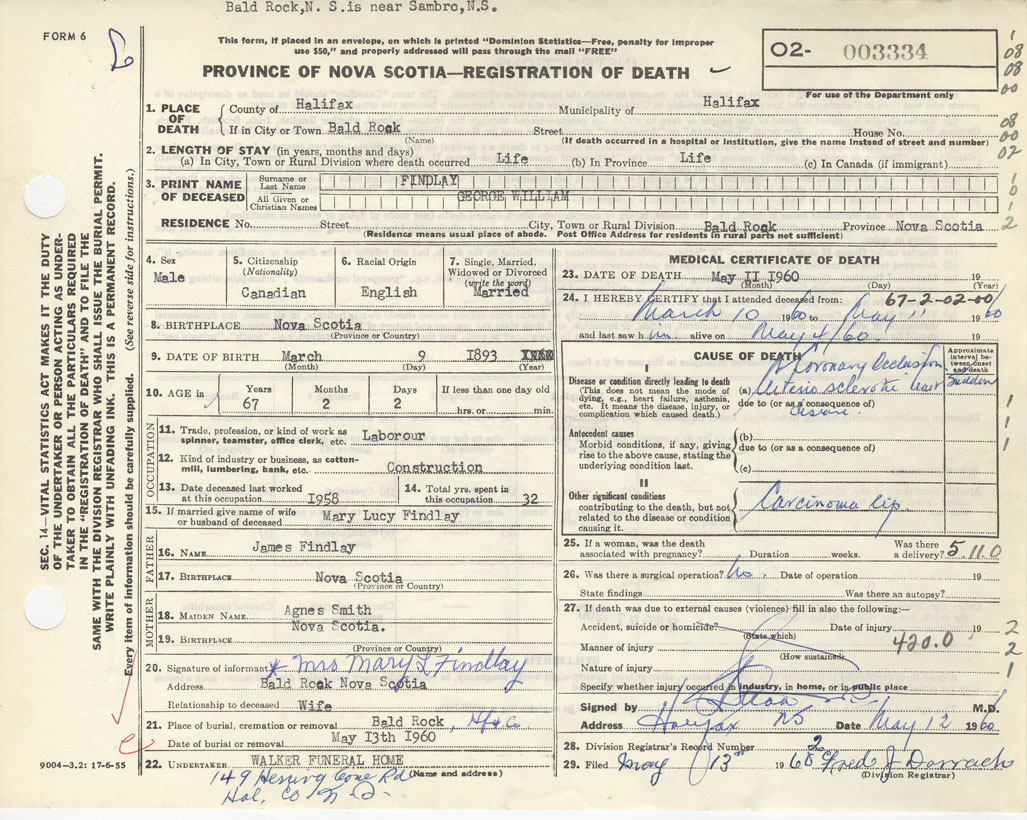 Bald Rock,N. S.is near Sambro,N.S.
FORM 6
This form, if placed in an envelope, on which is printed "Dominion Statistics—Free, penalty for improper
use $50," and properly addressed will pass through the mail "FREE"
PROVINCE OF NOVA SCOTIA—REGISTRATION OF DEATH
O2- 003334
For use of the Department only
1
08
08
00
08
00
02
1
0
1
2
1. PLACE OF DEATH
County of Halifax Municipality of Halifax
If in City or Town Bald Rock Street House No.
(Name) (If death occurred in a hospital or institution, give the name instead of street and number)
2. LENGTH OF STAY (in years, months and days)
(a) In City, Town or Rural Division where death occurred Life (b) In Province Life (c) In Canada (if immigrant)
3. PRINT NAME OF DECEASED
Surname or Last Name FINDLAY
All Given or Christian Names GEORGE WILLIAM
RESIDENCE No. Street City, Town or Rural Division Bald Rock Province Nova Scotia
(Residence means usual place of abode. Post Office Address for residents in rural parts not sufficient)
4. Sex
Male
5. Citizenship
(Nationality)
Canadian
6. Racial Origin
English
7. Single, Married,
Widowed or Divorced
(write the word)
Married
8. BIRTHPLACE Nova Scotia
(Province or Country)
9. DATE OF BIRTH March 9 I893
(Month) (Day) (Year)
10. AGE in
Years Months Days If less than one day old
67 2 2 hrs. or min.
OCCUPATION
11. Trade, profession, or kind of work as
spinner, teamster, office clerk, etc. Labourer
12. Kind of industry or business, as cotton-
mill, lumbering, bank, etc. Construction
13. Date deceased last worked
at this occupation I958
14. Total yrs. spent in
this occupation 32
15. If married give name of wife
or husband of deceased Mary Lucy Findlay
FATHER
16. NAME James Findlay
17. BIRTHPLACE Nova Scotia
(Province or Country)
MOTHER
18. MAIDEN NAME Agnes Smith
Nova Scotia.
19. BIRTHPLACE
(Province or Country)
20. Signature of informant x Mrs Mary L Findlay
Address Bald Rock Nova Scotia
Relationship to deceased Wife
21. Place of burial, cremation or removal Bald Rock, Hfx Co
Date of burial or removal May I3th I960
22. UNDERTAKER WALKER FUNERAL HOME
(Name and address)
149 Herring Cove Rd
Hal. Co
MEDICAL CERTIFICATE OF DEATH
23. DATE OF DEATH May II I960 19
(Month) (Day) (Year)
24. I HEREBY CERTIFY that I attended deceased from: 67-2-02-00
March 10 1960 to May 11 1960
and last saw him alive on May 4/60 19
CAUSE OF DEATH
Approximate interval between onset and death
I
Disease or condition directly leading to death
(This does not mean the mode of
dying, e.g., heart failure, asthenia,
etc. It means the disease, injury, or
complication which caused death.)
Coronary Occlusion Sudden
(a) Arteriosclerotic heart
due to (or as a consequence of)
disease.
Antecedent causes
Morbid conditions, if any, giving
rise to the above cause, stating the
underlying condition last.
(b)
due to (or as a consequence of)
(c)
II
Other significant conditions
contributing to the death, but not
related to the disease or condition
causing it.
Carcinoma lip.
1
1
1
25. If a woman, was the death
associated with pregnancy? Duration weeks. Was there
a delivery? 5.11.0
26. Was there a surgical operation? No. Date of operation 19
State findings Was there an autopsy?
27. If death was due to external causes (violence) fill in also the following:—
Accident, suicide or homicide? Date of injury 19
(State which)
Manner of injury 420.0
(How sustained)
Nature of injury
2
2
1
Specify whether injury occurred in industry, in home, or in public place
Signed by M.D.
Address Halifax NS Date May 12 1960
28. Division Registrar's Record Number 2
29. Filed May 13th 1960 Fred J Darrach
(Division Registrar)
SEC. 14—VITAL STATISTICS ACT MAKES IT THE DUTY
OF THE UNDERTAKER OR PERSON ACTING AS UNDER-
TAKER TO OBTAIN ALL THE PARTICULARS REQUIRED
IN THE "REGISTRATION OF DEATH" AND TO FILE THE
SAME WITH THE DIVISION REGISTRAR WHO SHALL ISSUE THE BURIAL PERMIT.
WRITE PLAINLY WITH UNFADING INK. THIS IS A PERMANENT RECORD.
Every item of information should be carefully supplied. (See reverse side for instructions.)
9004—3.2: 17-6-55